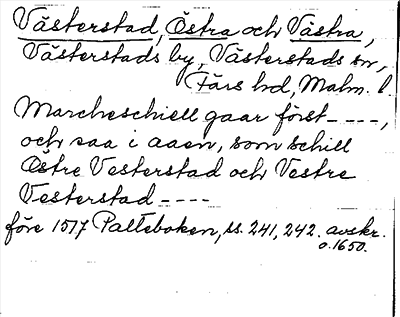 Västerstad, Östra och Västra,
Västerstads by, Västerstads sn,
Färs hd, Malm. l
Marcheschiell gaar först ----,
och saa i aaen, som schill
Östre Vesterstad och Vestre
Vesterstad ----
före 1517 Palteboken, ss. 241, 242. avskr.
o. 1650.